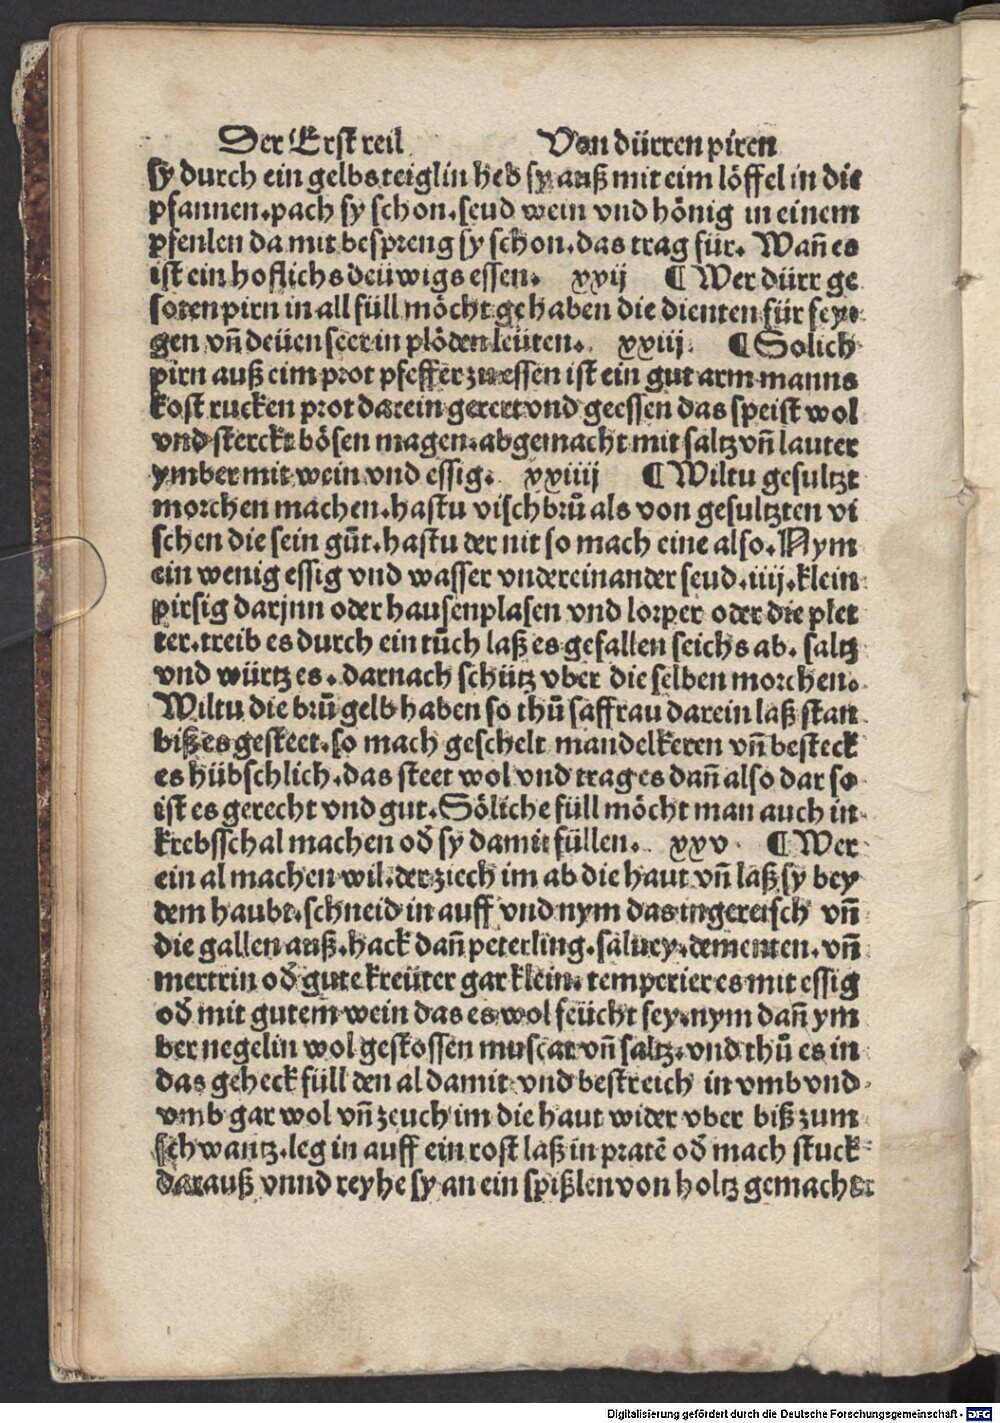 Der Erst teil Von dürren piren
sy durch ein gelbs teiglin heb sy auß mit eim löffel in die
pfannen. pach sy schon. seud wein vnd hönig in einem
pfenlen da mit bespreng sy schon. das trag für. Wañ es
ist ein hoflichs deüwigs essen. xxij ¶ Wer dürr ge
soten pirn in all füll möcht gehaben die dienten für feye
gen vñ deüen seer in plöden leüten. xxiij ¶ Solich
pirn auß eim prot pfeffer zu essen ist ein gut arm manns
kost rucken prot darein gerert vnd geessen das speist wol
vnd sterckt bösen magen. abgemacht mit saltz vñ lauter
ymber mit wein vnd essig. xxiiij ¶ Wiltu gesultzt
morchen machen. hastu vischbrů als von gesultzten vi
schen die sein gůt. hastu der nit so mach eine also. Nym
ein wenig essig vnd wasser vndereinander seud. iiij. klein
pirsig darjnn oder hausenplasen vnd lorper oder die plet
ter. treib es durch ein tůch laß es gefallen seichs ab. saltz
vnd würtz es. darnach schütz vber die selben morchen.
Wiltu die brů gelb haben so thů saffrau darein laß stan
biß es gesteet. so mach geschelt mandelkeren vñ besteck
es hübschlich. das steet wol vnd trag es dañ also dar so
ist es gerecht vnd gut. Söliche füll möcht man auch in
krebsschal machen od̄ sy damit füllen. xxv ¶ Wer
ein al machen wil. der ziech im ab die haut vñ laß sy bey
dem haubt. schneid in auff vnd nym das ingereisch vñ
die gallen auß. hack dañ peterling. saluey. dementen. vñ
mertrin od̄ gute kreüter gar klein. temperier es mit essig
od̄ mit gutem wein das es wol feücht sey. nym dañ ym
ber negelin wol gestossen muscat vñ saltz. vnd thů es in
das geheck füll den al damit vnd bestreich in vmb vnd
vmb gar wol vñ zeuch im die haut wider vber biß zum
schwantz. leg in auff ein rost laß in pratē od̄ mach stuck
darauß vnnd reyhe sy an ein spißlen von holtz gemacht
Digitalisierung gefördert durch die Deutsche Forschungsgemeinschaft - DFG